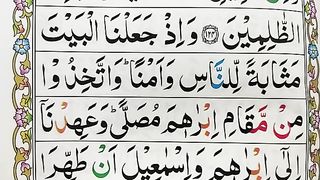 الظّٰلِمِيْنَ ۝۱۲۴ وَاِذْ جَعَلْنَا الْبَيْتَ
مَثَابَةً لِّلنَّاسِ وَاَمْنًا ؕ وَاتَّخِذُوْا
مِنْ مَّقَامِ اِبْرٰهٖمَ مُصَلًّى ؕ وَعَهِدْنَاۤ
اِلٰۤى اِبْرٰهٖمَ وَاِسْمٰعِيْلَ اَنْ طَهِّرَا